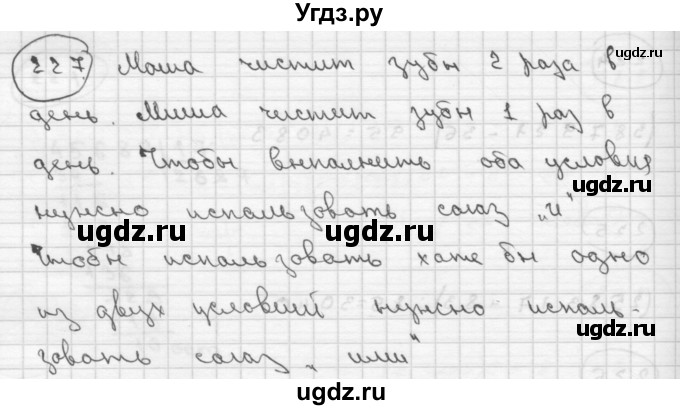 Угдз.ру
227 Маша чистит зубы 2 раза в
день. Миша чистит зубы 1 раз в
день. Чтобы выполнить оба условия
нужно использовать союз „и"
Чтобы использовать хотя бы одно
из двух условий нужно исполь-
зовать союз „или"
ugdz.ru
ugdz.ru
ugdz.ru
ugdz.ru
ugdz.ru
ugdz.ru
ugdz.ru
ugdz.ru